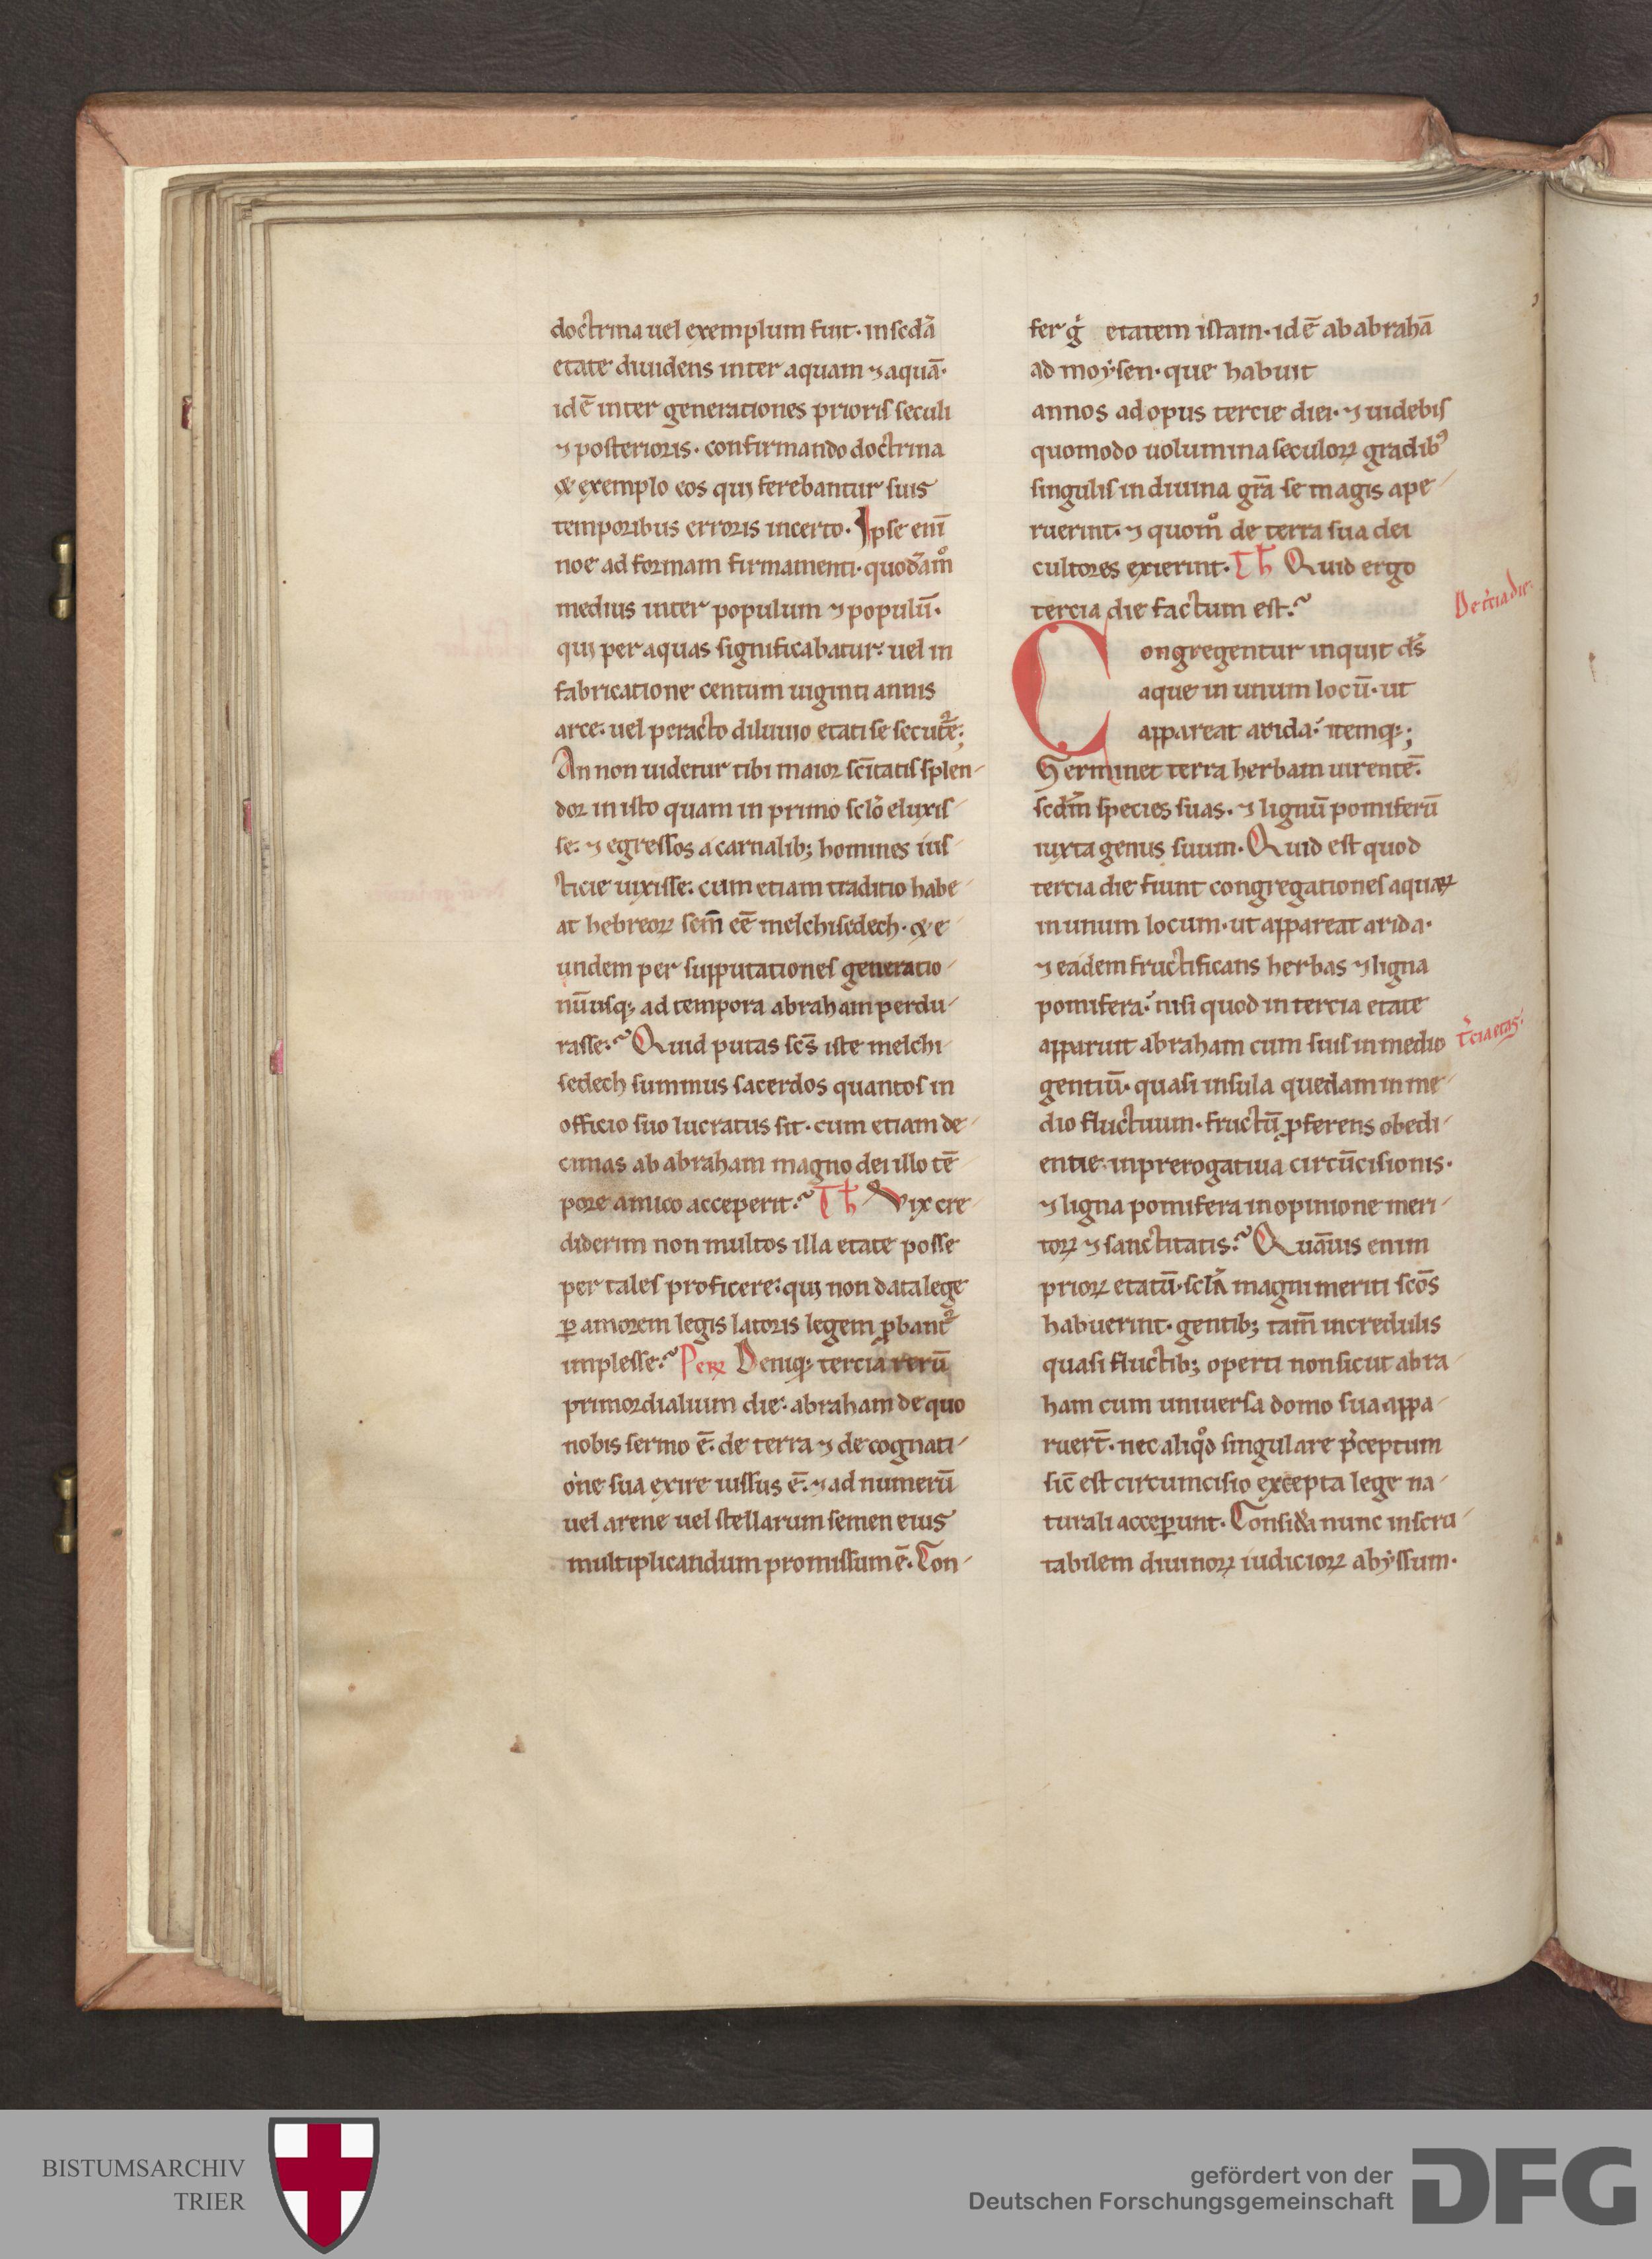 doctrina uel exemplum fuit· in sc̄da
etate diuidens inter aquam ⁊ aquā·
id ē inter generationes prioris seculi
⁊ posterioris· confirmando doctrina
& exemplo eos qui ferebantur suis
temporibus erroris incerto· Ipse enī
noe ad formam firmamenti· quodāmº
medius inter populum ⁊ populū·
qui per aquas significabatur· uel in
fabricatione centum uiginti annis
arce· uel peracto diluuio etati se secutę;
An non uidetur tibi maior scītatis splen-
dor in isto quam in primo sclō eluxis-
se· ⁊ egressos a carnalib; homines ius-
ticie uixisse· cum etiam traditio habe-
at hebreoꝝ sem̄ eē melchisedech· & e-
undem per supputationes generatio-
nū usq; ad tempora abraham perdu-
rasse·? Quid putas scs̄ iste melchi-
sedech summus sacerdos quantos in
officio suo lucratus sit· cum etiam de-
cimas ab abraham magno dei illo tē-
pore amico acceperit·? Th Vix cre-
diderim non multos illa etate posse
per tales proficere· qui non data lege
ꝑ amorem legis latoris legem ꝓbant᷑
implesse·? Peꝝ Deniq; tercia rerū
primordialium die· abraham de quo
nobis sermo ē· de terra ⁊ de cognati-
one sua exire iussus ē· ⁊ ad numerū
uel arene uel stellarum semen eius
multiplicandum promissum ē· Con-
fer g̊ etatem istam· id ē ab abrahā
ad moysen· que habuit
annos ad opus tercie diei· ⁊ uidebis
quomodo uolumina seculoꝝ gradibꝰ
singulis in diuina grā se magis ape-
ruerint· ⁊ quomº de terra sua dei
cultores exierint· Th Quid ergo
tercia die factum est·?
De tercia die·
Congregentur inquit ds̄
aque in unum locū· ut
appareat arida· itemq;;
Germinet terra herbam uirentē·
scdm̄ species suas· ⁊ lignū pomiferū
iuxta genus suum· Quid est quod
tercia die fiunt congregationes aquaꝝ
in unum locum· ut appareat arida·
⁊ eadem fructificans herbas ⁊ ligna
pomifera· nisi quod in tercia etate
apparuit abraham cum suis in medio
tercia etas·
gentiū· quasi insula quedam in me-
dio fluctuum· fructū ꝓferens obedi-
entie· in prerogatiua circūcisionis·
⁊ ligna pomifera in opinione meri-
toꝝ ⁊ sanctitatis·? Quāuis enim
prioꝝ etatū· scla magni meriti scōs
habuerint· gentib; tam̄ incredulis
quasi fluctib; operti non sicut abra-
ham cum uniuersa domo sua appa-
ruert̄· nec aliqº̄d singulare p̄ceptum
sic̄ est circumcisio excepta lege na-
turali acceꝑunt· Consid̄a nunc inscru-
tabilem diuinoꝝ iudicioꝝ abyssum·
BISTUMSARCHIV
TRIER
gefördert von der
Deutschen Forschungsgemeinschaft
DFG